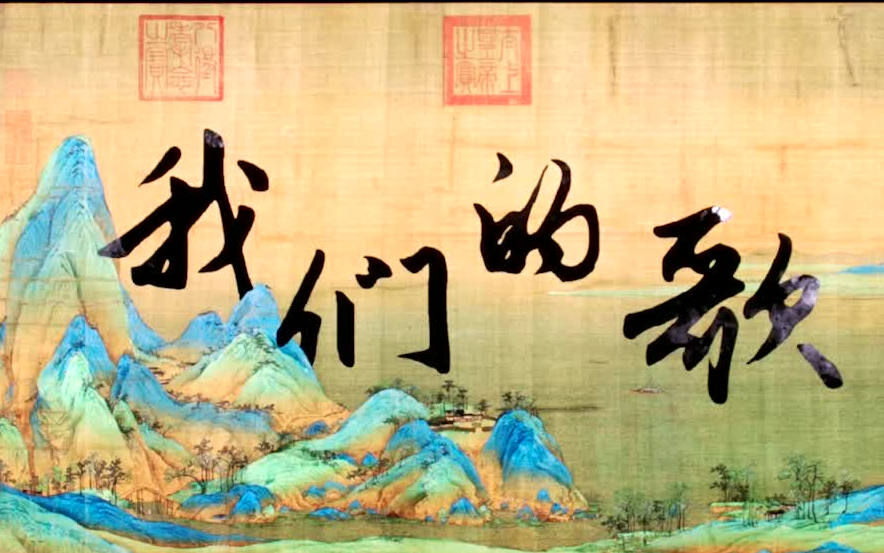 我们的歌